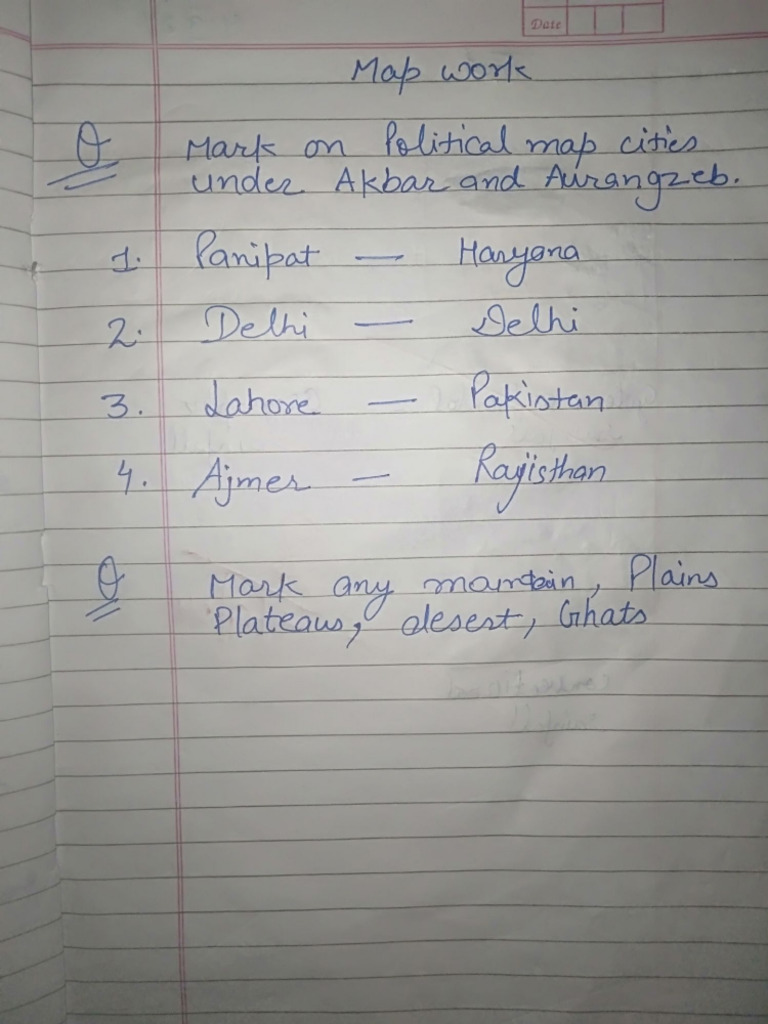 Date
Map work
Q Mark on Political map cities
under Akbar and Aurangzeb.
1. Panipat — Haryana
2. Delhi — Delhi
3. Lahore — Pakistan
4. Ajmer — Rajisthan
Q Mark any mountain, Plains
Plateaus, desert, Ghats